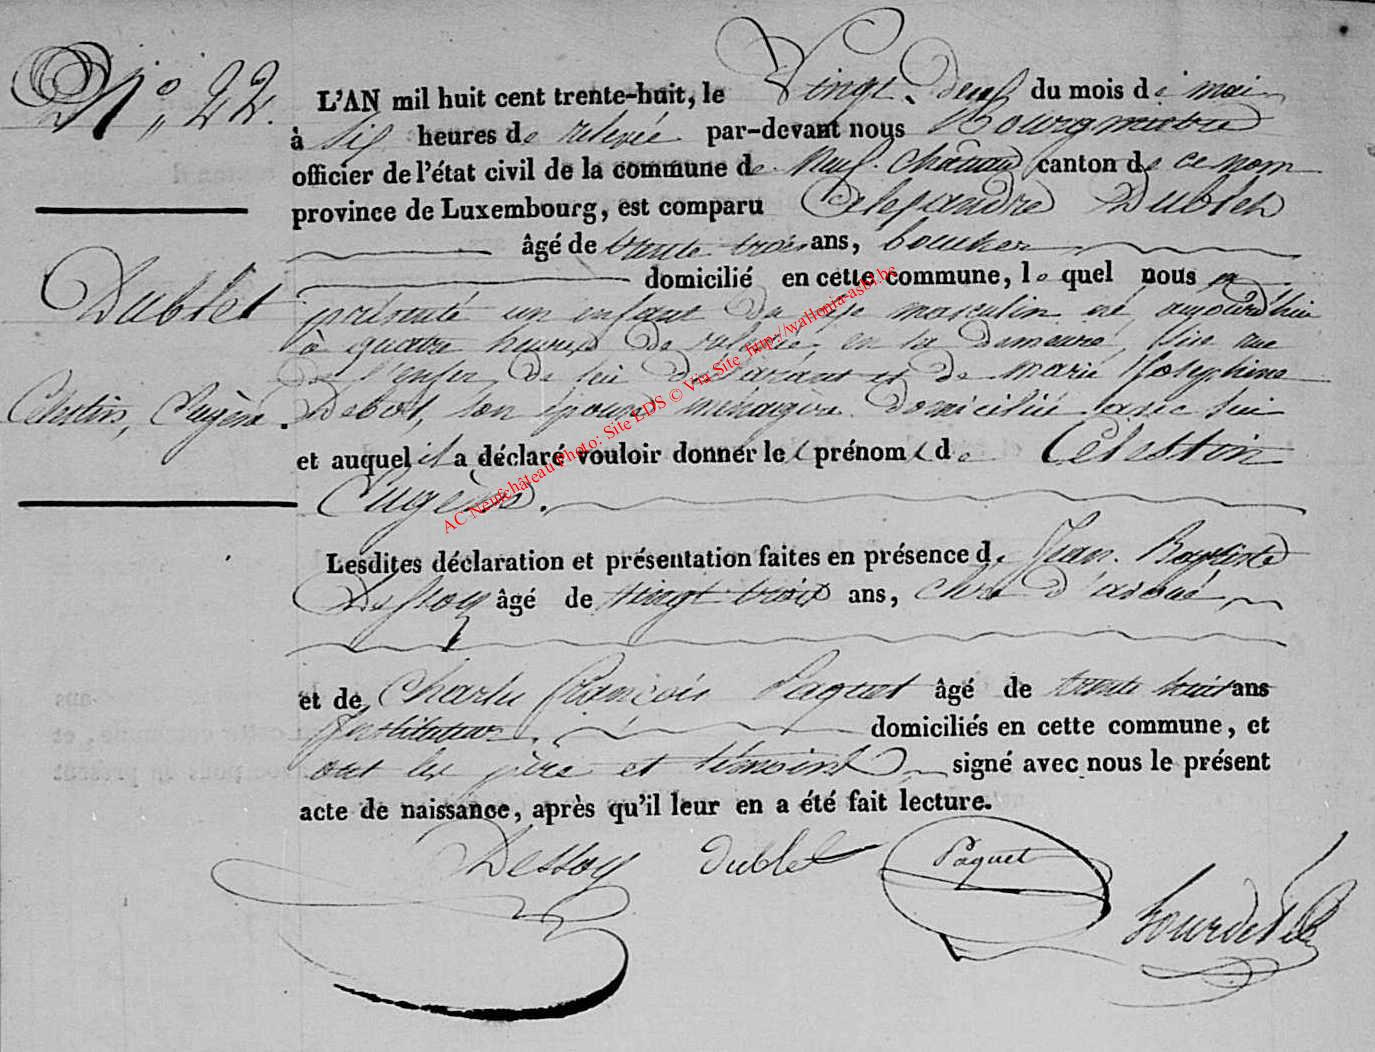 N° 22.
L'AN mil huit cent trente-huit, le Vingt deux du mois de mai
à six heures de relevée par-devant nous Bourgmestre
officier de l'état civil de la commune de Neuf-Château canton de ce nom
province de Luxembourg, est comparu Alexandre Dublet
âgé de trente trois ans, boucher
domicilié en cette commune, lequel nous a
Dublet
présenté un enfant du sexe masculin né aujourd'hui
à quatre heures de relevée, en la demeure, sise rue
de l'enfer, de lui déclarant et de Marie Josephine
Célestin, Eugène.
son épouse ménagère domiciliée avec lui
et auquel il a déclaré vouloir donner les prénoms de Célestin
Eugène.
Lesdites déclaration et présentation faites en présence de Jean-Baptiste
Dessoy âgé de vingt trois ans, clerc d'avoué
et de Charles François Paquet âgé de trente huit ans
Instituteur domiciliés en cette commune, et
ont les père et témoins signé avec nous le présent
acte de naissance, après qu'il leur en a été fait lecture.
Dessoy Dublet Paquet
AC Neufchâteau Photo: Site LDS © Via Site http://wallonia-asbl.be